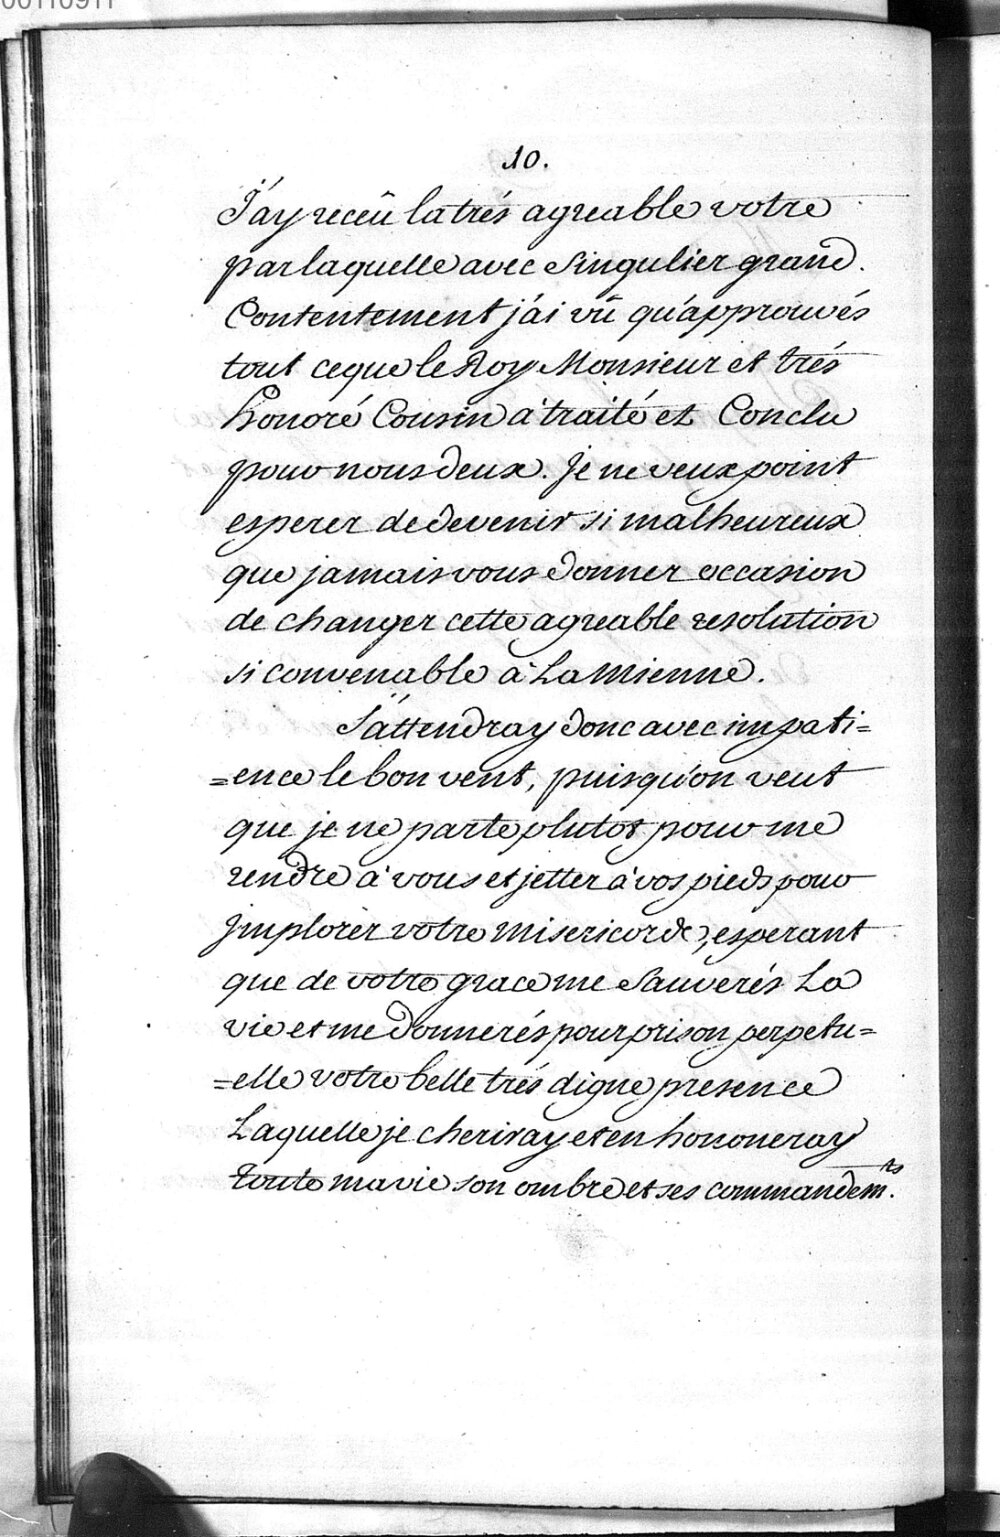 00110911
10.
J'ay receû la trés agreable votre
par laquelle avec singulier grand.
Contentement j'ai vû qu'approuvés
tout ceque le Roy Monsieur et trés
honoré Cousin a traité et Conclu
pour nous deux. Je ne veux point
esperer de devenir si malheureux
que jamais vous donner occasion
de changer cette agreable resolution
si convenable à La mienne.
J'attendray donc avec impati=
=ence le bon vent, puisqu'on veut
que je ne parte plutot pour me
rendre à vous et jetter à vos pieds pour
Jmplorer votre misericorde, esperant
que de votre grace me sauverés La
vie et me donnerés pour prison perpetu=
=elle votre belle trés digne presence
Laquelle je cheriray et en hononeray
toute ma vie son ombre et ses commandem.ts